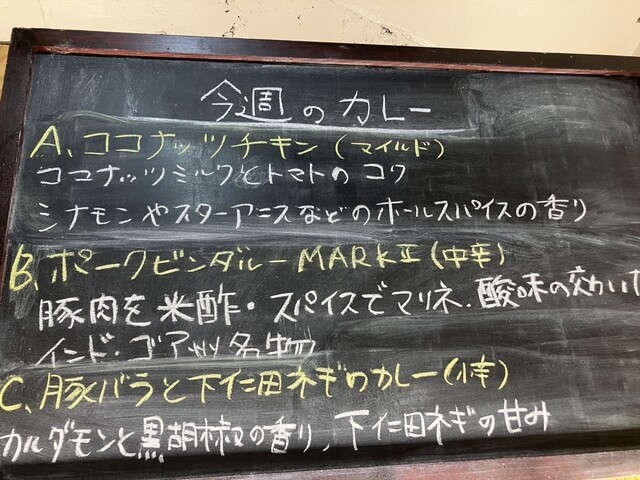 今週のカレー
A、ココナッツチキン(マイルド)
ココナッツミルクとトマトのコク
シナモンやスターアニスなどのホールスパイスの香り
B、ポークビンダルーMARKⅡ(中辛)
豚肉を米酢・スパイスでマリネ、酸味の効いた
インド・ゴア州名物
C、豚バラと下仁田ネギのカレー(小辛)
カルダモンと黒胡椒の香り、下仁田ネギの甘み